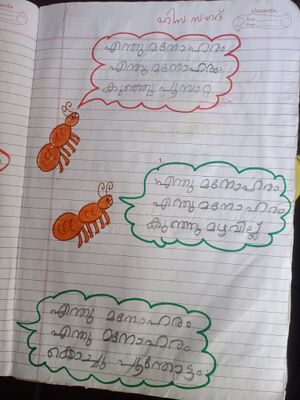 ഹിസ സനദ്
എന്തു മനോഹരം
എന്തു മനോഹരം
കുഞ്ഞു പൂമ്പാറ്റ
എന്തു മനോഹരം
എന്തു മനോഹരം
കുഞ്ഞു മഴവില്ല്
എന്തു മനോഹരം
എന്തു മനോഹരം
കൊച്ചു പൂന്തോട്ടം